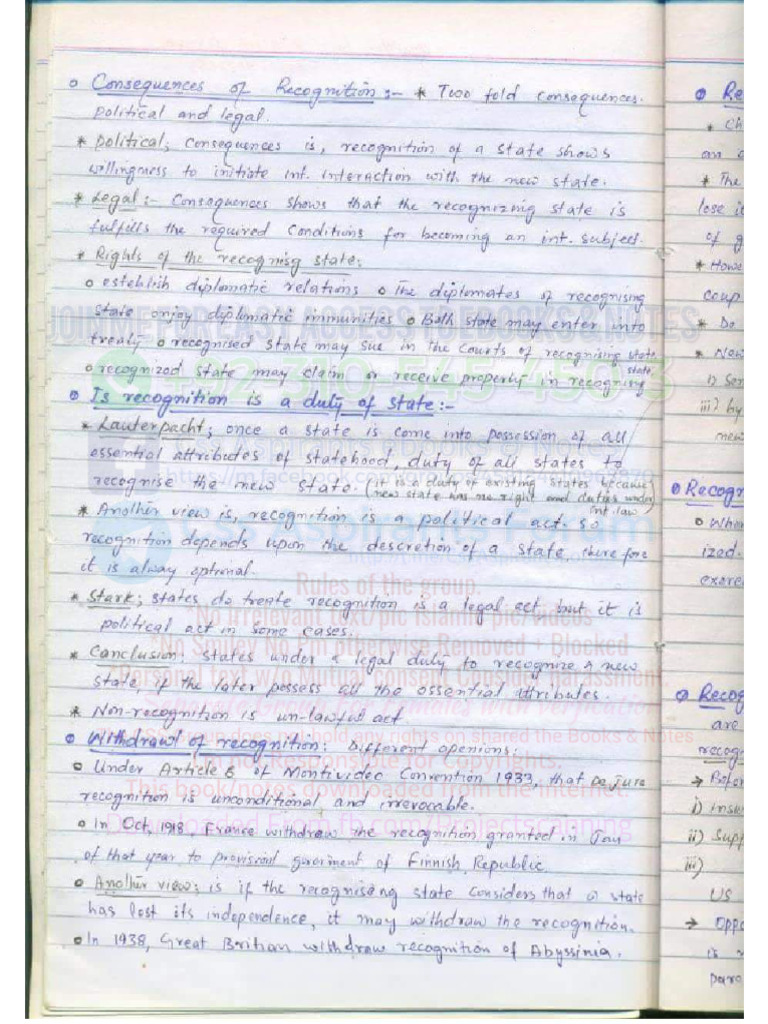 o Consequences of Recognition :- * Two fold consequences.
political and legal.
* political; consequences is, recognition of a state shows
willingness to initiate int. interaction with the new state.
* Legal :- Consequences shows that the recognizing state is
fulfills the required conditions for becoming an int. subject.
* Rights of the recognisg state:
o establish diplomatic relations o The diplomates of recognising
state enjoy diplomatic immunities o Both state may enter into
treaty o recognised state may sue in the courts of recognising state.
o recognized state may claim or receive property in recognising state
JOIN ME FOR EASY ACCESS TO EBOOKS & NOTES
+92-310-545-450-3
o Is recognition is a duty of state :-
* Lauterpacht; once a state is come into possession of all
essential attributes of statehood, duty of all states to
recognise the new state. (it is a duty of existing states because
new state has no right and duties under
int. law)
* Another view is, recognition is a political act. so
recognition depends upon the descretion of a state therefore
it is alway optional.
* Stark; states do treate recognition is a legal act but it is
political act in some cases.
* Canclusion: states under a legal duty to recognize a new
state, if the later possess all the essential attributes.
* Non-recognition is un-lawful act.
o Withdrawl of recognition: Different openions:
o Under Article 6 of Montivideo Convention 1933, that De Jure
recognition is unconditional and irrevocable.
o In Oct, 1918, France withdraw the recognition granted in Jan
of that year to provisional government of Finnish Republic.
o Another view; is if the recognising state considers that a state
has lost its independence, it may withdraw the recognition.
o In 1938, Great Britian withdraw recognition of Abyssinia.
Rules of the group.
*No Irrelevant text/pic Islamic pic/videos
Downloaded From fb.com/Projectscanning
o Re
* Ch
an
* The
lose it
of g
* Howe
coup
* Do
* New
i) Ser
iii) by
new
o Recogn
o When
ized.
exerc
o Recog
are
recogn
→ Befor
i) Insu
ii) Supp
iii)
US
→ Oppo
is
paro